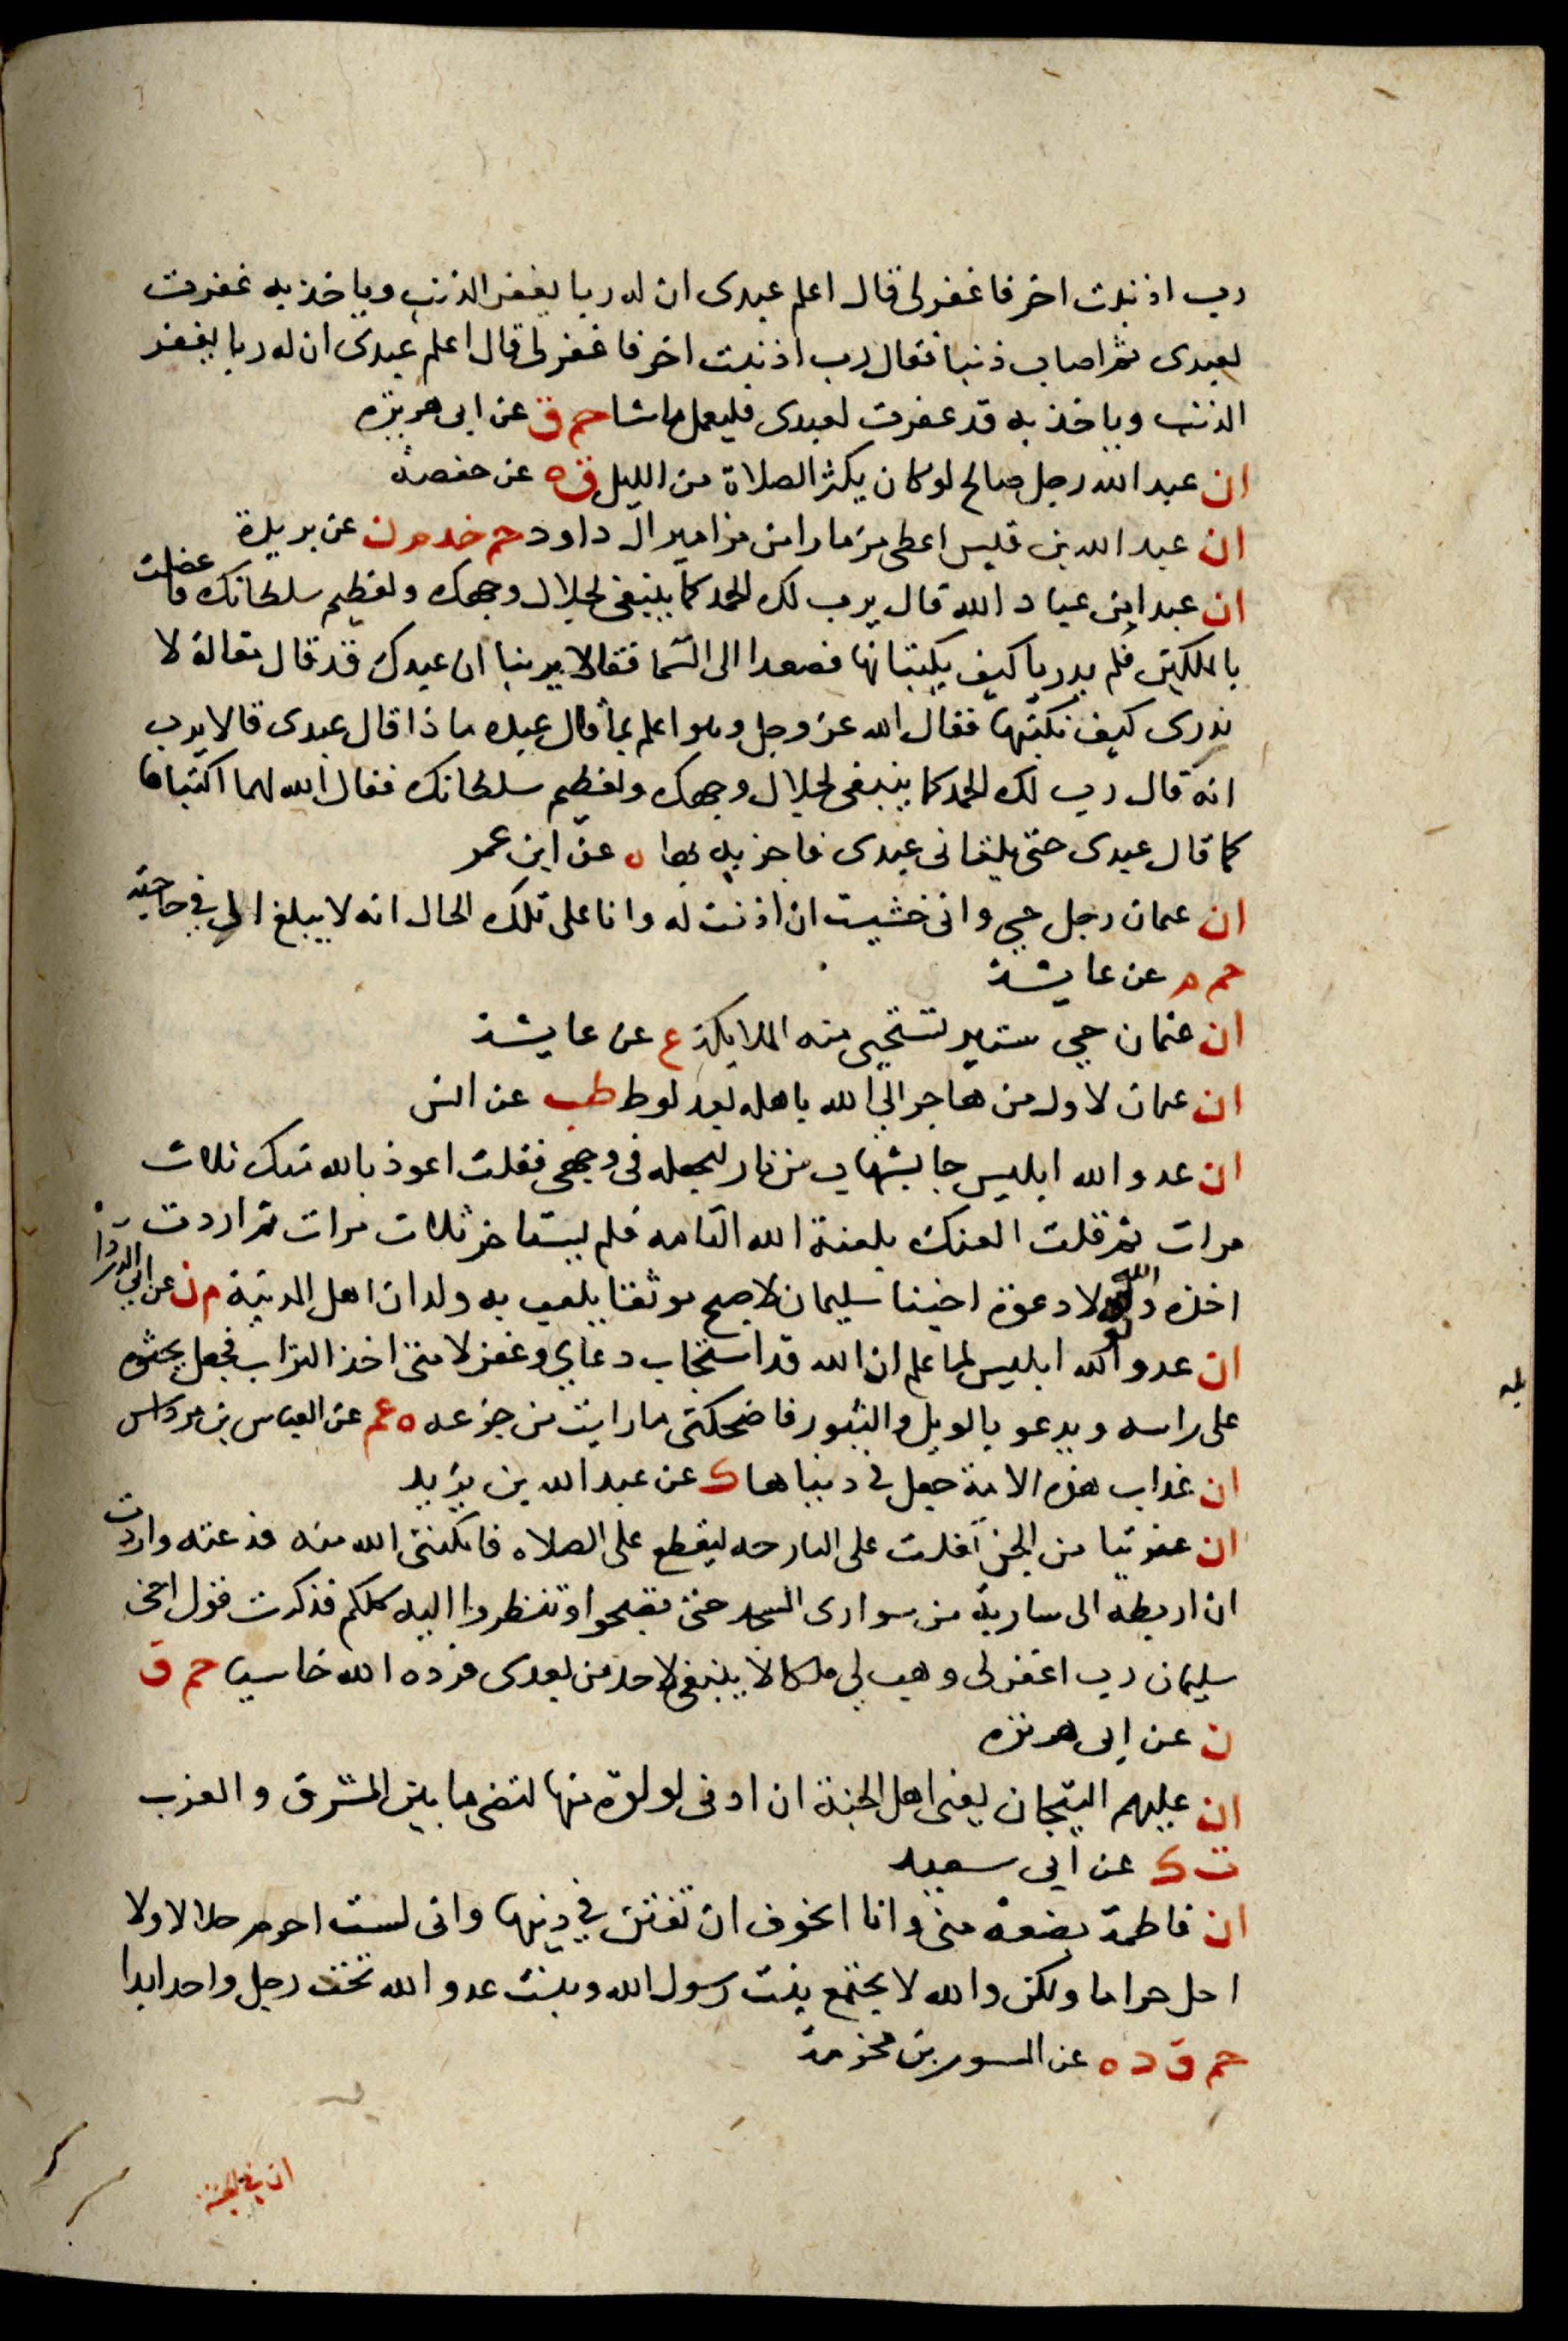 رب اذنبت اخر فاغفر لى قال اعلم عبدى ان له ربا يغفر الذنب وياخذ به غفرت
لعبدى ثم اصاب ذنبا فقال رب اذنبت اخر فاغفر لى قال اعلم عبدى ان له ربا يغفر
الذنب وياخذ به قد غفرت لعبدى فليعمل ما شا حم ق عن ابى هريره
ان عبد الله رجل صالح لو كان يكثر الصلاة من الليل ق ه عن حفصه
ان عبد الله بن قيس اعطى مزمارا من مزامير ال داود حم خد م ن عن بريدة
ان عبدا من عباد الله قال يرب لك الحمد كما ينبغى لجلال وجهك ولعظيم سلطانك فاعضلت
بالملكين فلم يدريا كيف يكتبانها فصعدا الى السما فقالا يربنا ان عبدك قد قال مقالة لا
ندرى كيف نكتبها فقال الله عز وجل وهو اعلم بما قال عبده ماذا قال عبدى قالا يرب
انه قال رب لك الحمد كما ينبغى لجلال وجهك ولعظيم سلطانك فقال الله لهما اكتباها
كما قال عبدى حتى يلقانى عبدى فاجزيه بها ه عن ابن عمر
ان عثمان رجل حيي وانى خشيت ان اذنت له وانا على تلك الحال انه لا يبلغ الى في حاجته
حم م عن عايشة
ان عثمان حيي ستير تستحيى منه الملايكة ع عن عايشة
ان عثمان لاول من هاجر الي الله باهله بعد لوط طب عن انس
ان عدو الله ابليس جا بشهاب من نار ليجعله فى وجهى فقلت اعوذ بالله منك ثلاث
مرات ثم قلت العنك بلعنة الله التامه فلم يستاخر ثلاث مرات ثم اردت
اخذه والله لولا دعوة اخينا سليمان لاصبح موثقا يلعب به ولدان اهل المدينة م ن عن ابي الدردا
ان عدو الله ابليس لما علم ان الله قد استجاب دعاي وغفر لامتى اخذ التراب فجعل يحثوه
على راسه ويدعو بالويل والثبور فاضحكنى ما رايت من جزعه ه عم عن العباس بن مرداس
ان عذاب هذه الامة جعل في دنياها ك عن عبد الله بن يزيد
ان عفريتا من الجن تفلت على البارحه ليقطع على الصلاه فامكننى الله منه فذعته واردت
ان اربطه الى سارية من سوارى المسجد حتى تصبحوا وتنظروا اليه كلكم فذكرت قول اخى
سليمان رب اغفر لى وهب لي ملكا لا ينبغى لاحد من بعدى فرده الله خاسيا حم ق
ن عن ابى هريره
ان عليهم التيجان يعنى اهل الجنة ان ادنى لولوة منها لتضى ما بين المشرق والمغرب
ت ك عن ابي سعيد
ان فاطمة بضعة منى وانا اتخوف ان تفتن في دينها وانى لست احرم حلالا ولا
احل حراما ولكن والله لا يجتمع بنت رسول الله وبنت عدو الله تحت رجل واحد ابدا
حم ق د ه عن المسور بن مخرمة
ان في الجنة